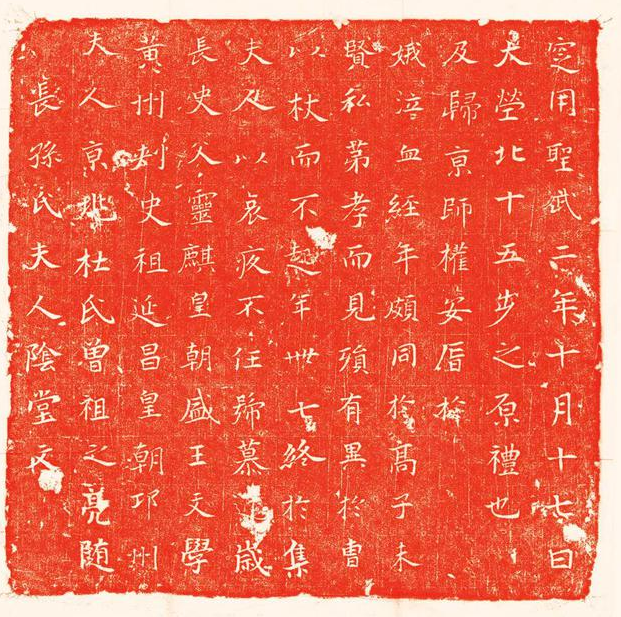 長孫氏夫人陰堂文
夫人京兆杜氏曾祖之亮随
黃州刾史祖延昌皇朝邛州
長史父靈麒皇朝盛王文學
夫人以哀疚不任號慕歲
以杖而不起年卅七終於集
賢私苐孝而見殯有異於曹
娥泣血經年頗同於高子未
及歸京師權安厝於
大塋北十五步之原禮也
寔用聖武二年十月十七日